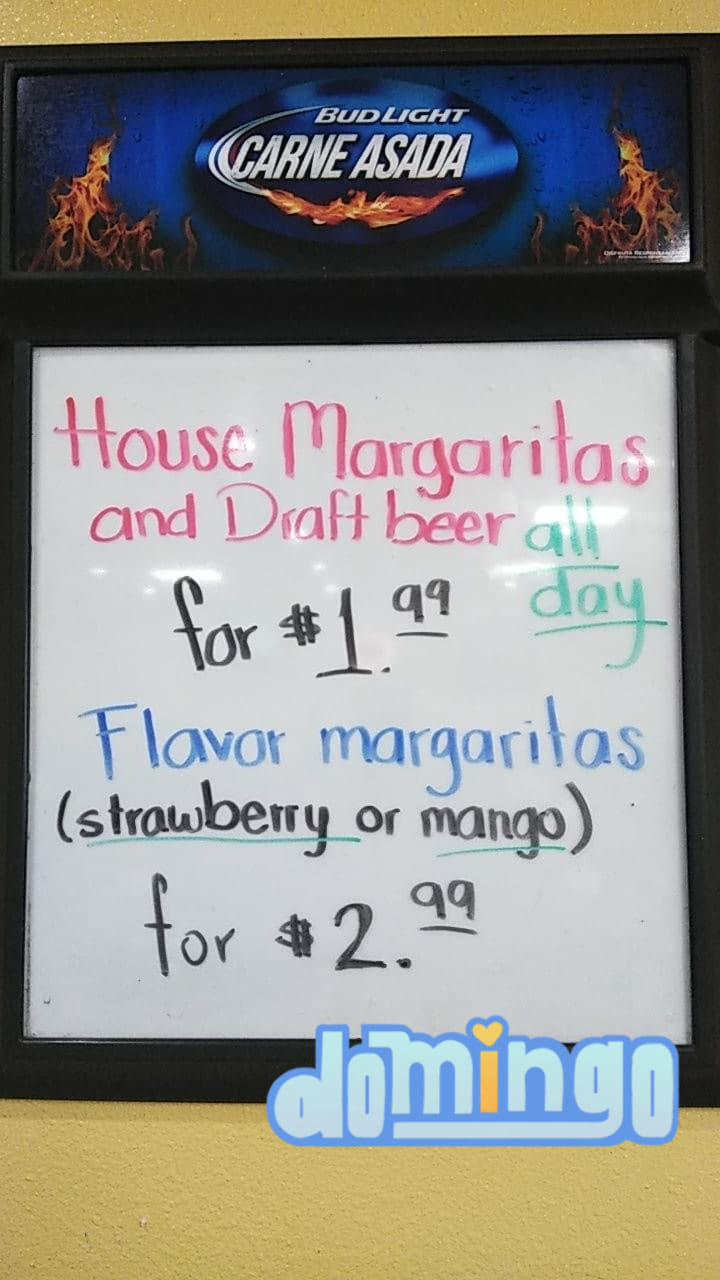 BUD LIGHT
CARNE ASADA
House Margaritas
and Draft beer all
day
for $1.99
Flavor margaritas
(strawberry or mango)
for $2.99
domingo